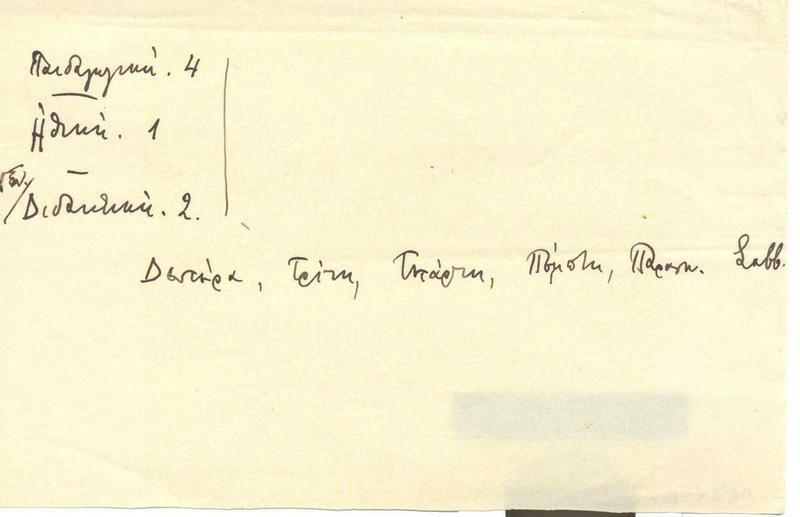 Παιδαγωγική. 4
Ηθική. 1
Γεν.
Διδακτική. 2.
Δευτέρα, Τρίτη, Τετάρτη, Πέμπτη, Παρασκ. Σαββ.